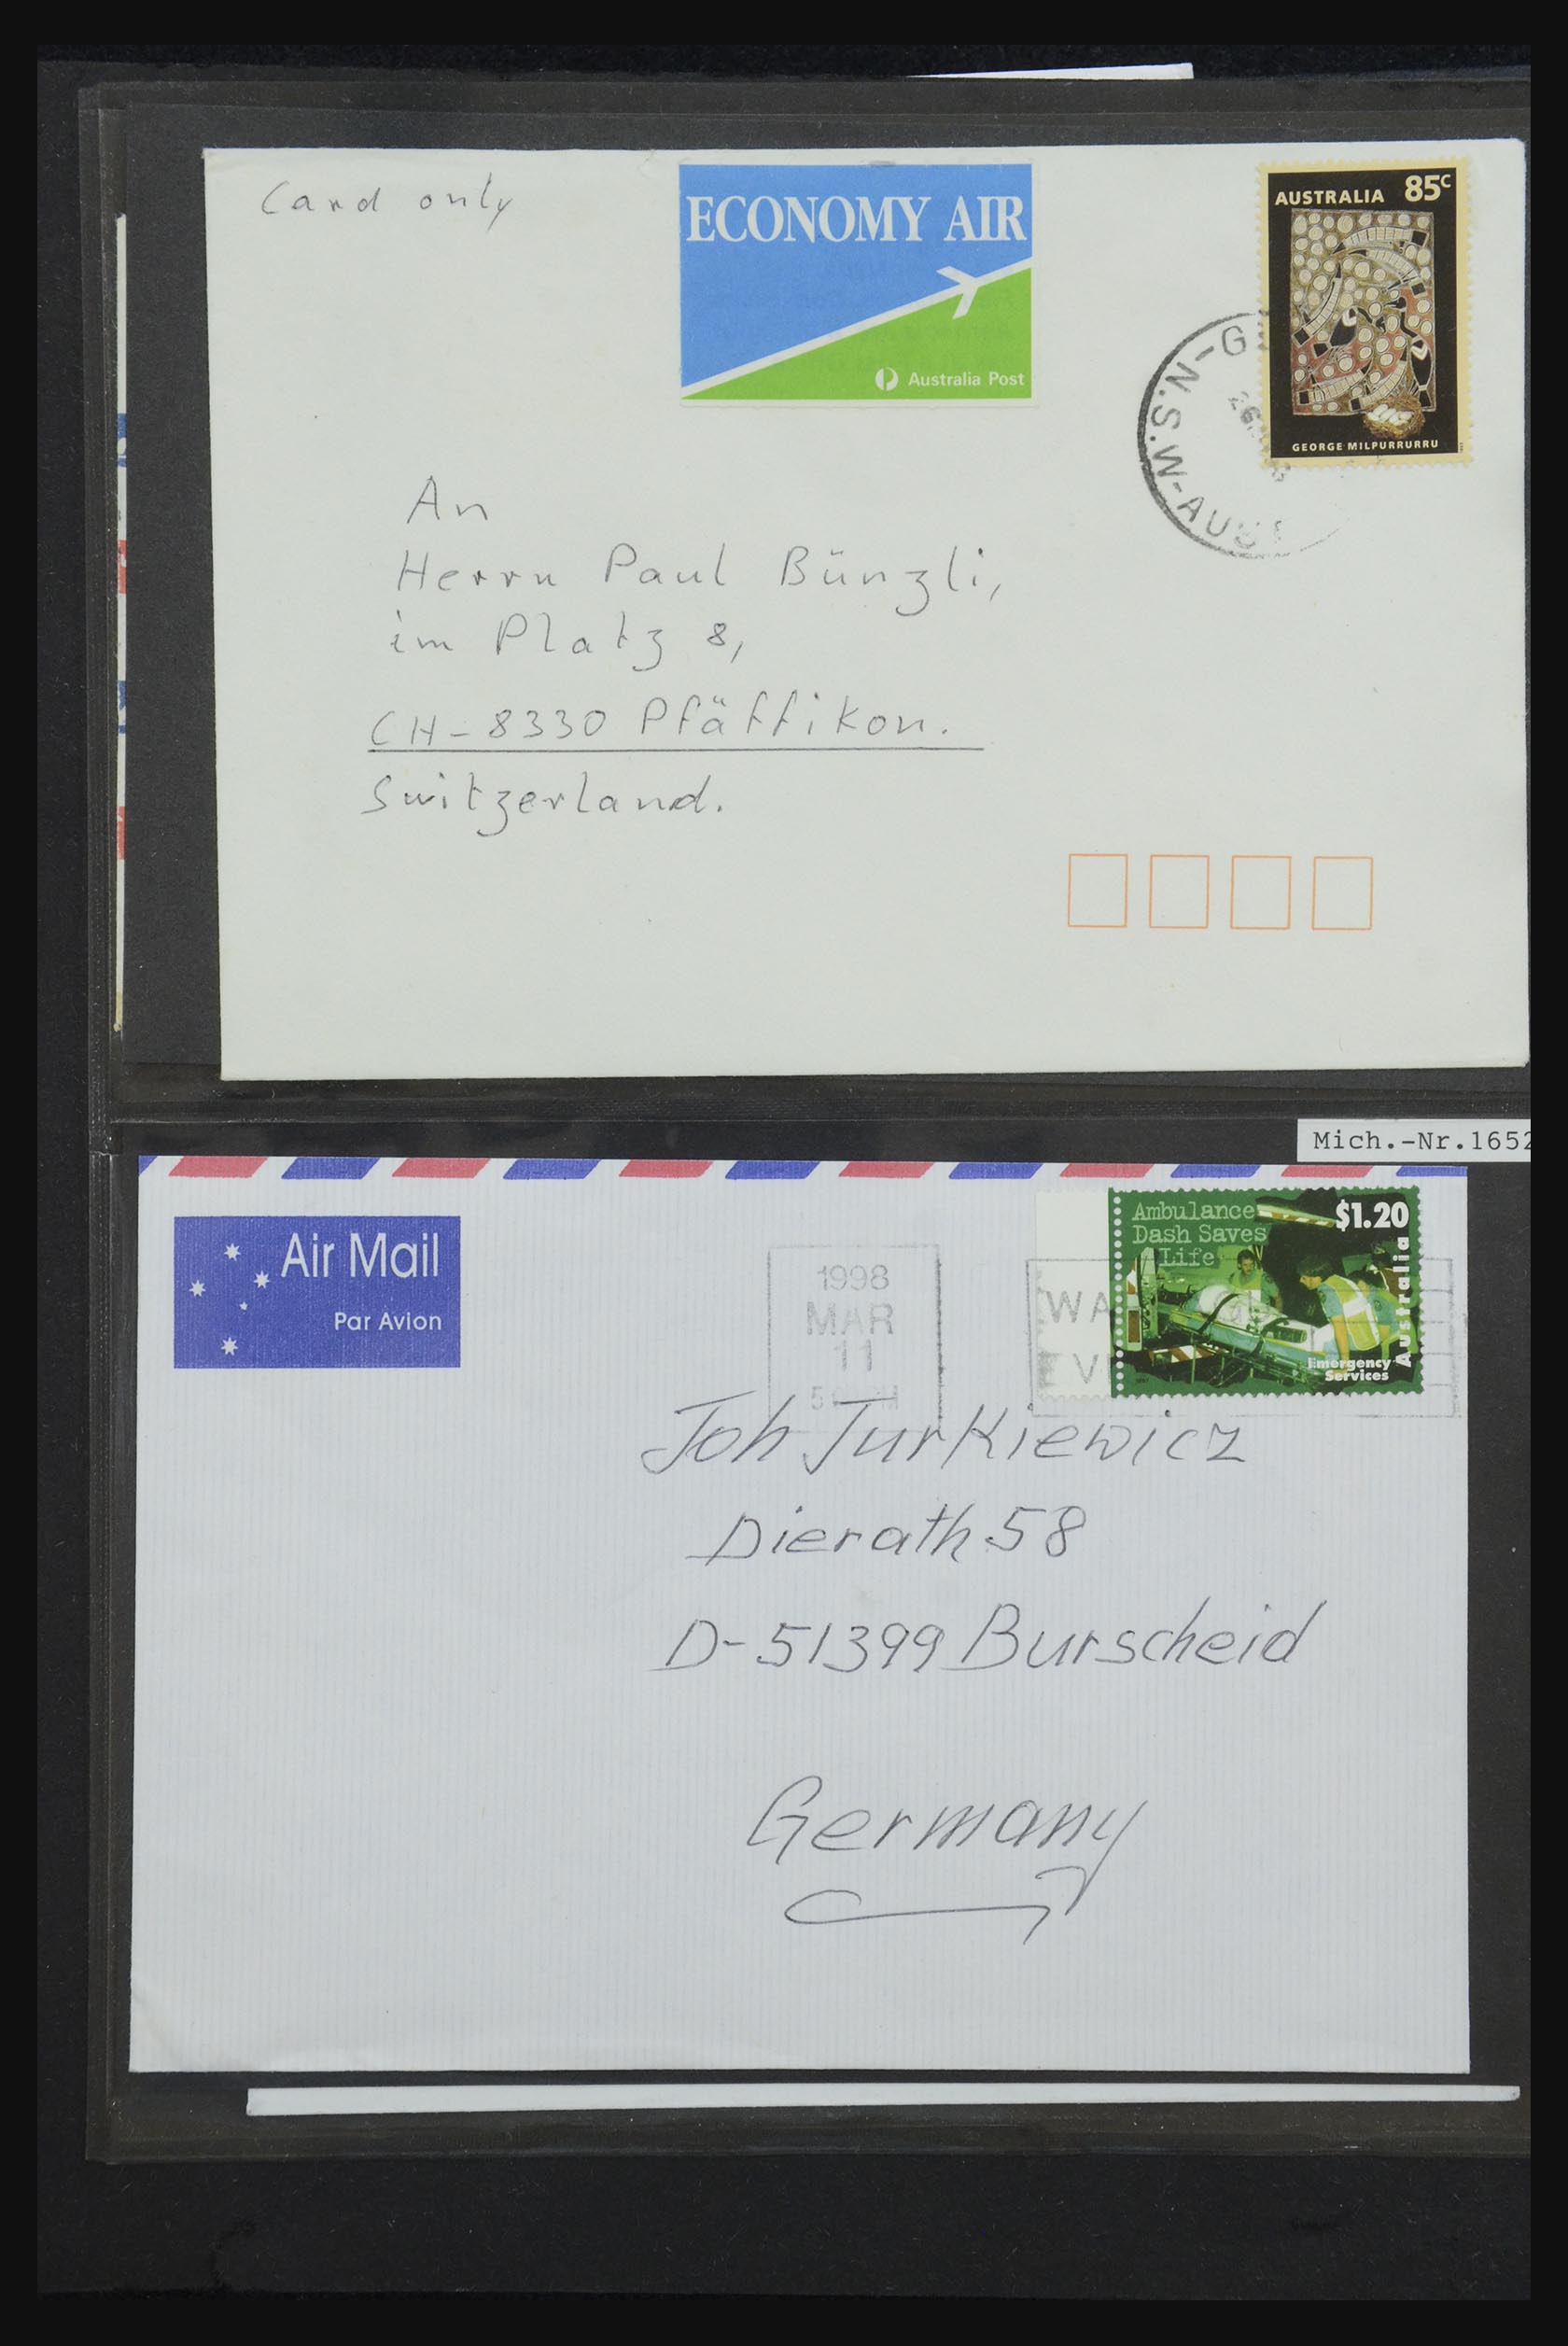 Card only
ECONOMY AIR
Australia Post
AUSTRALIA 85c
GEORGE MILPURRURRU
N.S.W-AUST
An
Herrn Paul Bünzli,
im Platz 8,
CH-8330 Pfäffikon.
Switzerland.
Mich.-Nr.1652
Air Mail
Par Avion
1998
MAR
11
WA
EV
Ambulance
Dash Saves
Life
$1.20
Australia
Emergency
Services
Joh Jurkiewicz
Dierath 58
D-51399 Burscheid
Germany